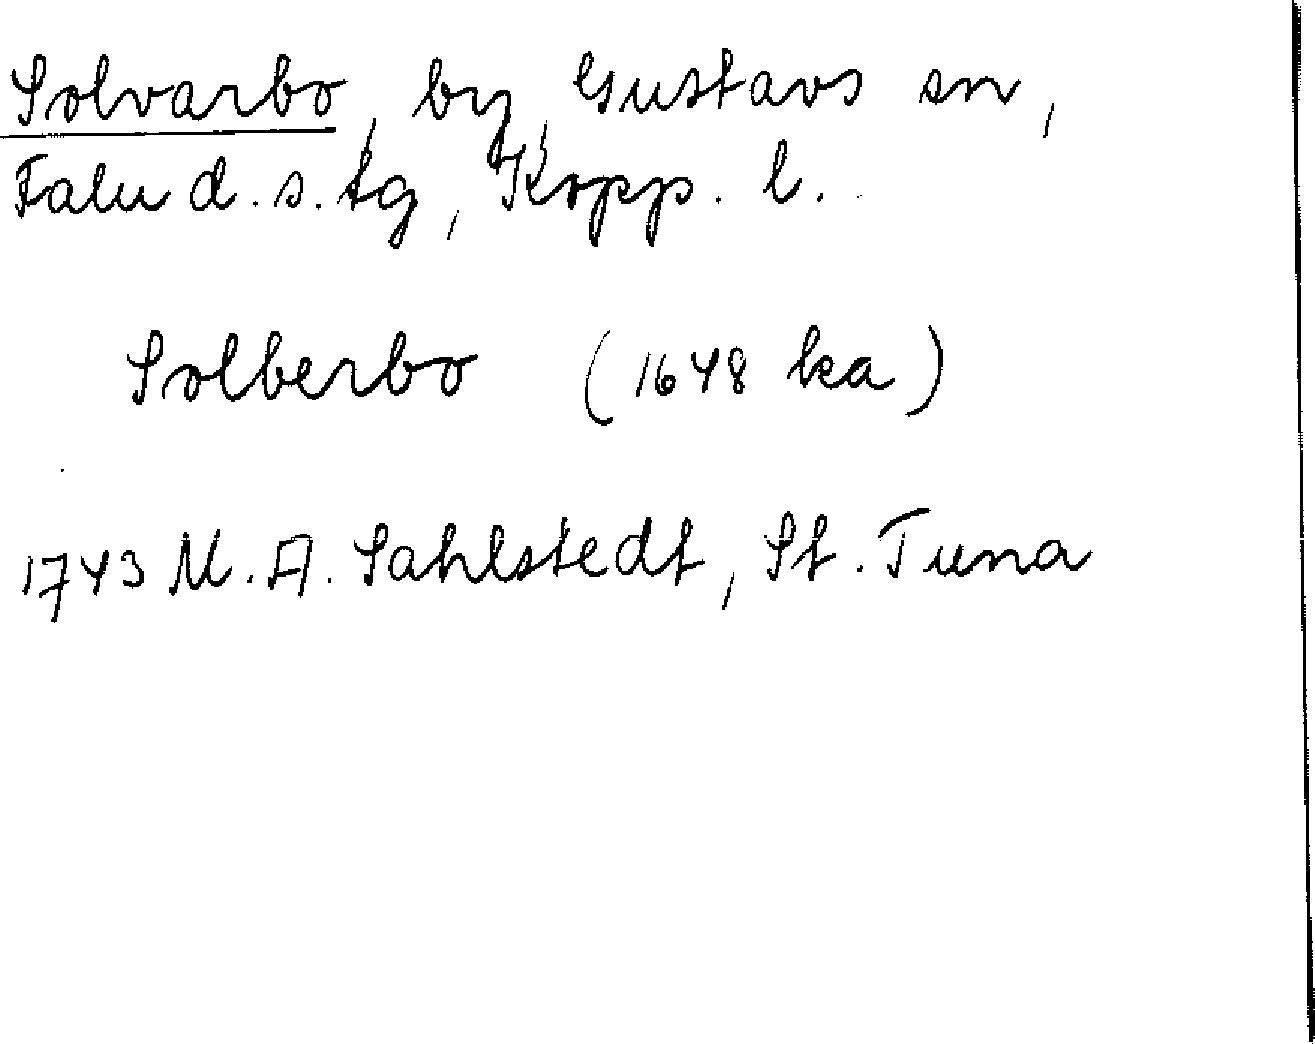 Solvarbo, by, Gustavs sn,
Falu d.s. tg, Kopp. l.
Solberbo (1648 ka)
1743 M.A. Sahlstedt, St. Tuna